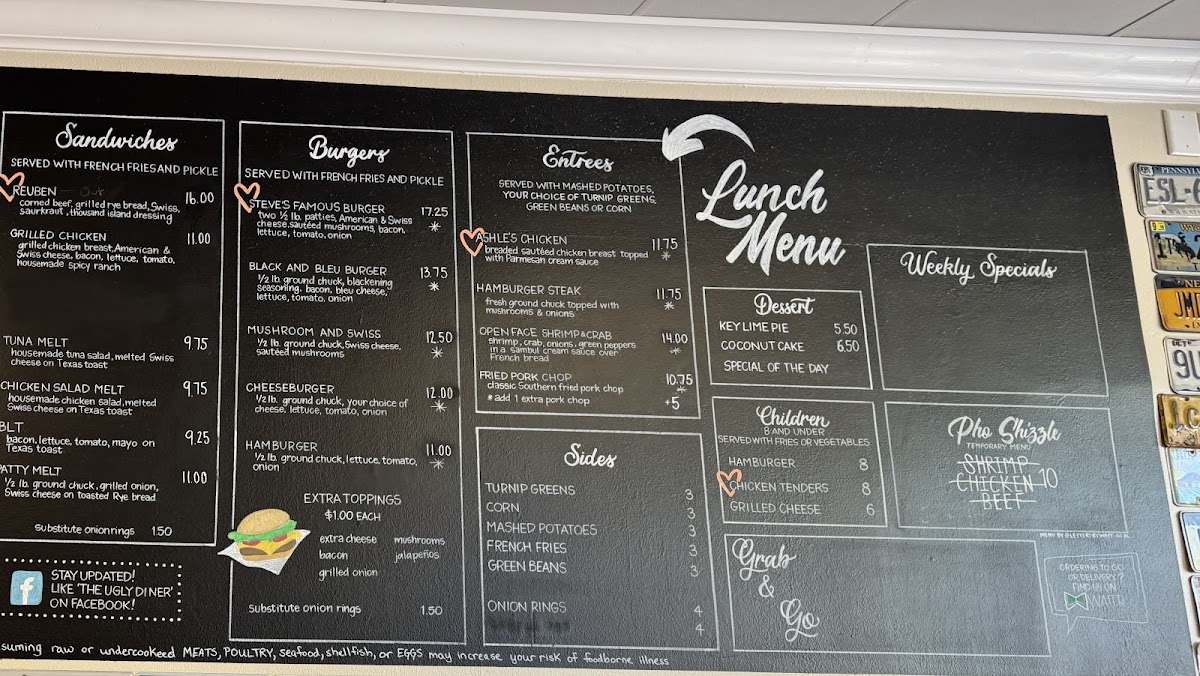 Sandwiches
SERVED WITH FRENCH FRIES AND PICKLE
REUBEN 16.00
corned beef, grilled rye bread, Swiss,
saurkraut, thousand island dressing
GRILLED CHICKEN 11.00
grilled chicken breast, American &
Swiss cheese, bacon, lettuce, tomato,
housemade spicy ranch
TUNA MELT 9.75
housemade tuna salad, melted Swiss
cheese on Texas toast
CHICKEN SALAD MELT 9.75
housemade chicken salad, melted
Swiss cheese on Texas toast
BLT 9.25
bacon, lettuce, tomato, mayo on
Texas toast
PATTY MELT 11.00
½ lb. ground chuck, grilled onion,
Swiss cheese on toasted Rye bread
Substitute onion rings 1.50
STAY UPDATED!
LIKE 'THE UGLY DINER'
ON FACEBOOK!
Burgers
SERVED WITH FRENCH FRIES AND PICKLE
STEVE'S FAMOUS BURGER 17.25
two ½ lb. patties, American & Swiss *
cheese, sautéed mushrooms, bacon,
lettuce, tomato, onion
BLACK AND BLEU BURGER 13.75
½ lb. ground chuck, blackening *
seasoning, bacon, bleu cheese,
lettuce, tomato, onion
MUSHROOM AND SWISS 12.50
½ lb. ground chuck, Swiss cheese, *
sautéed mushrooms
CHEESEBURGER 12.00
½ lb. ground chuck, your choice of *
cheese, lettuce, tomato, onion
HAMBURGER 11.00
½ lb. ground chuck, lettuce, tomato, *
onion
EXTRA TOPPINGS
$1.00 EACH
extra cheese mushrooms
bacon jalapeños
grilled onion
Substitute onion rings 1.50
Entrees
SERVED WITH MASHED POTATOES,
YOUR CHOICE OF TURNIP GREENS,
GREEN BEANS OR CORN
ASHLE'S CHICKEN 11.75
breaded sautéed chicken breast topped *
with Parmesan cream sauce
HAMBURGER STEAK 11.75
fresh ground chuck topped with *
mushrooms & onions
OPEN FACE SHRIMP & CRAB 14.00
shrimp, crab, onions, green peppers *
in a sambul cream sauce over
French bread
FRIED PORK CHOP 10.75
classic Southern fried pork chop *
*add 1 extra pork chop +5
Sides
TURNIP GREENS 3
CORN 3
MASHED POTATOES 3
FRENCH FRIES 3
GREEN BEANS 3
ONION RINGS 4
4
Lunch
Menu
Dessert
KEY LIME PIE 5.50
COCONUT CAKE 6.50
SPECIAL OF THE DAY
Children
8 AND UNDER
SERVED WITH FRIES OR VEGETABLES
HAMBURGER 8
CHICKEN TENDERS 8
GRILLED CHEESE 6
Grab
&
Go
Weekly Specials
Pho Shizzle
TEMPORARY MENU
SHRIMP
CHICKEN 10
BEEF
ORDERING TO GO
OR DELIVERY?
FIND US ON
WAITR
suming raw or undercookeed MEATS, POULTRY, seafood, shellfish, or EGGS may increase your risk of foodborne illness
PENNSYLV
ESL-